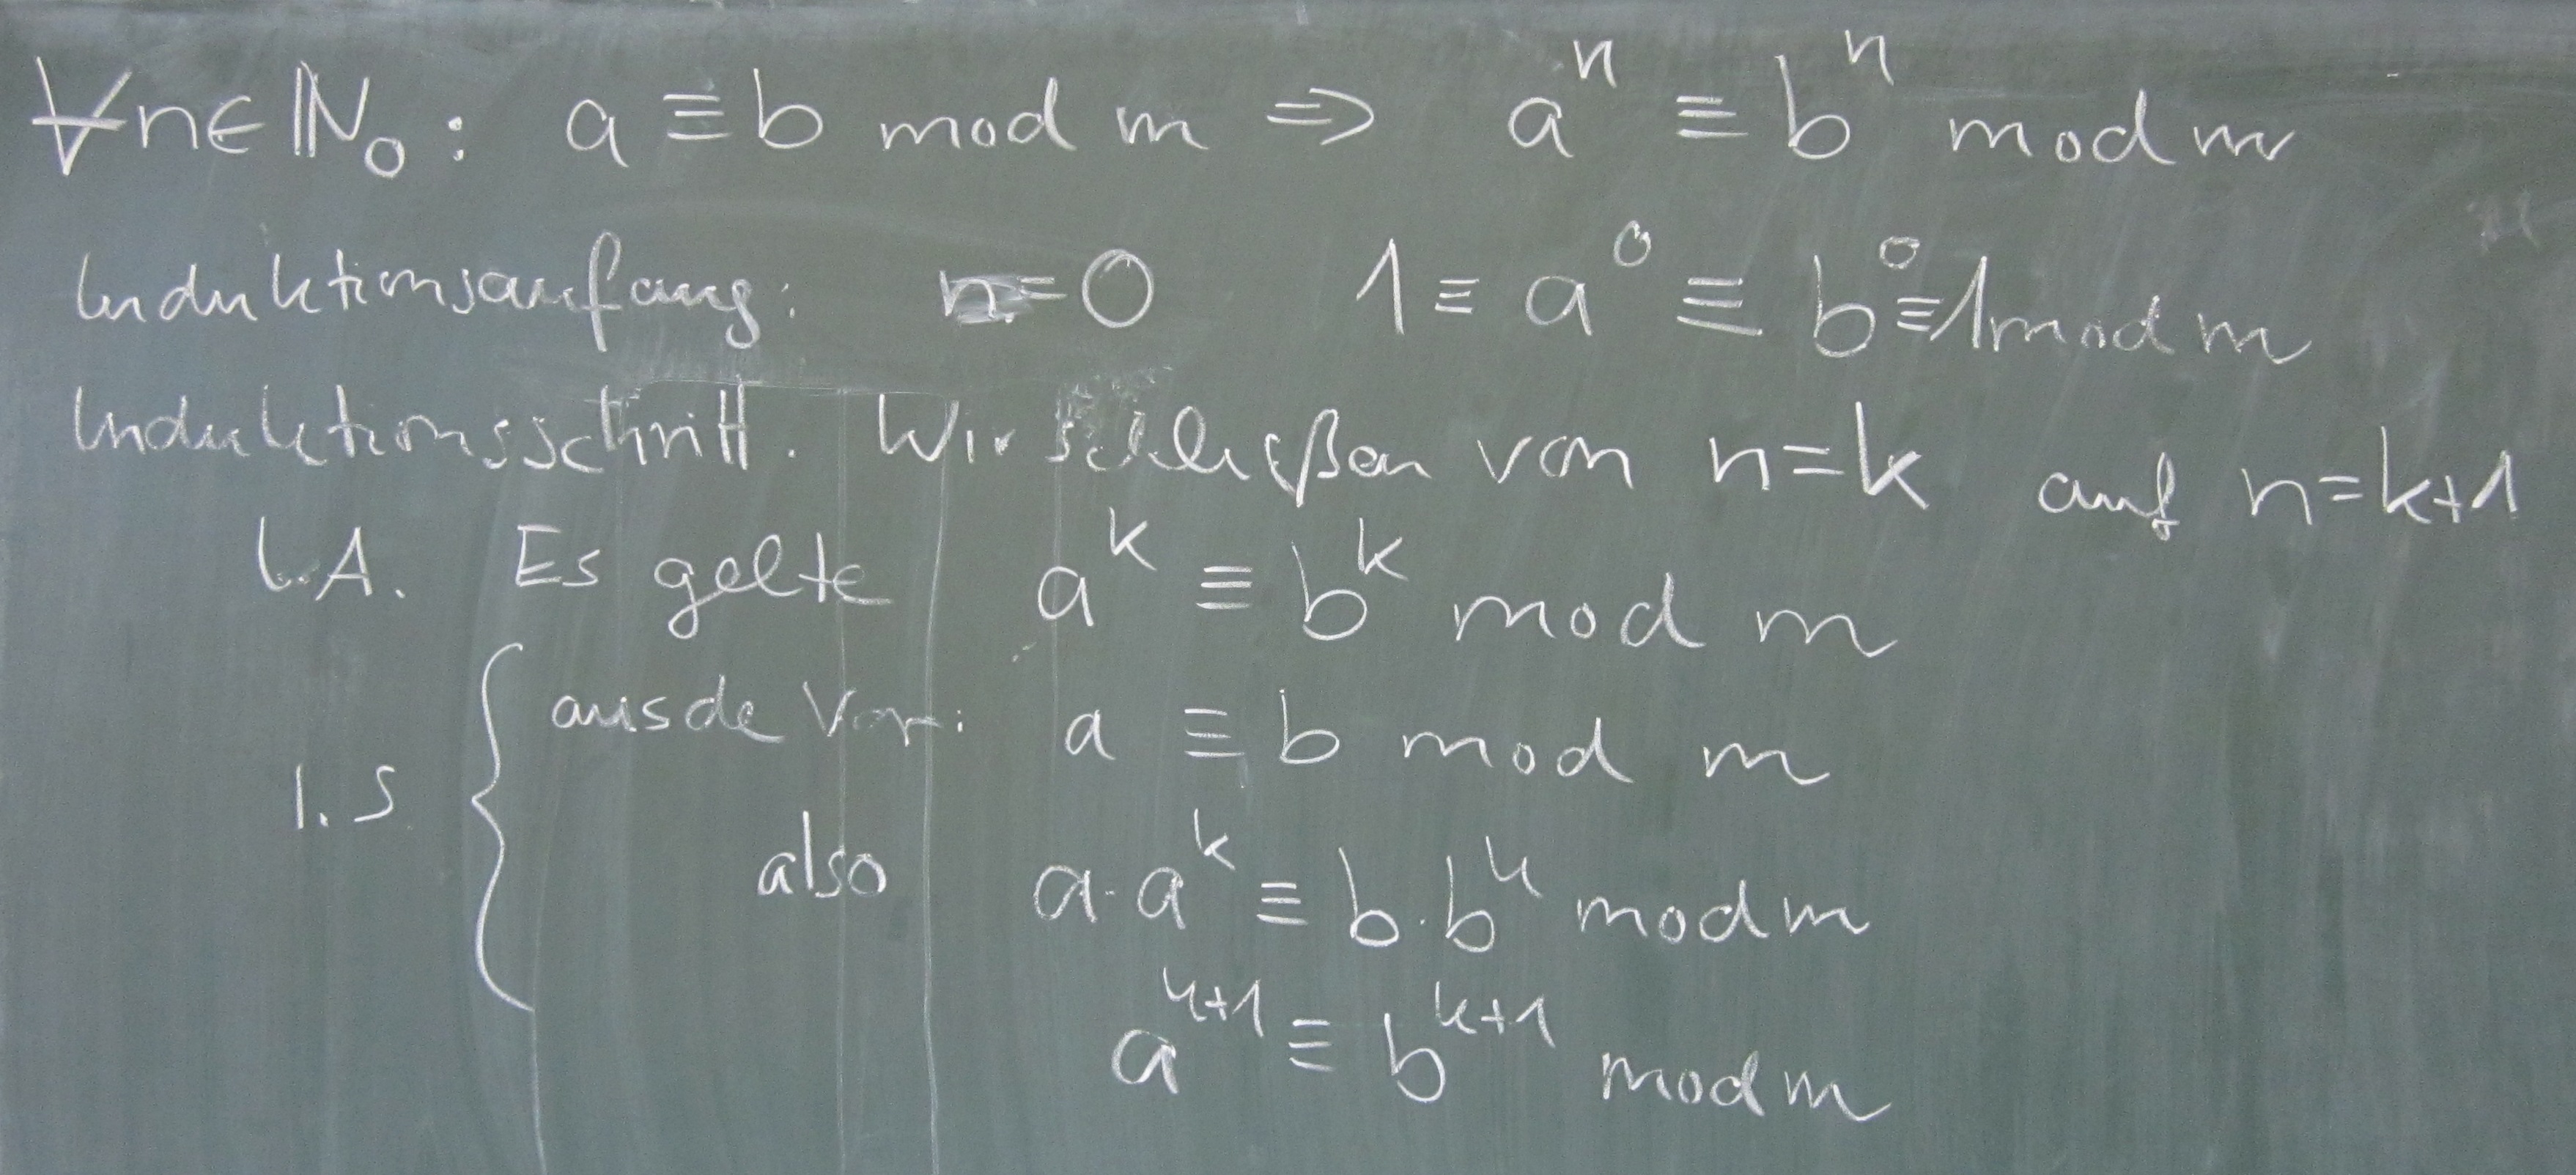 ∀n∈ℕ₀: a ≡ b mod m ⇒ aⁿ ≡ bⁿ mod m
Induktionsanfang: n=0 1 ≡ a⁰ ≡ b⁰ ≡ 1 mod m
Induktionsschritt. Wir schließen von n=k auf n=k+1
I.A. Es gelte aᵏ ≡ bᵏ mod m
aus de Vor: a ≡ b mod m
I.S
also a·aᵏ ≡ b·bᵏ mod m
aᵏ⁺¹ ≡ bᵏ⁺¹ mod m